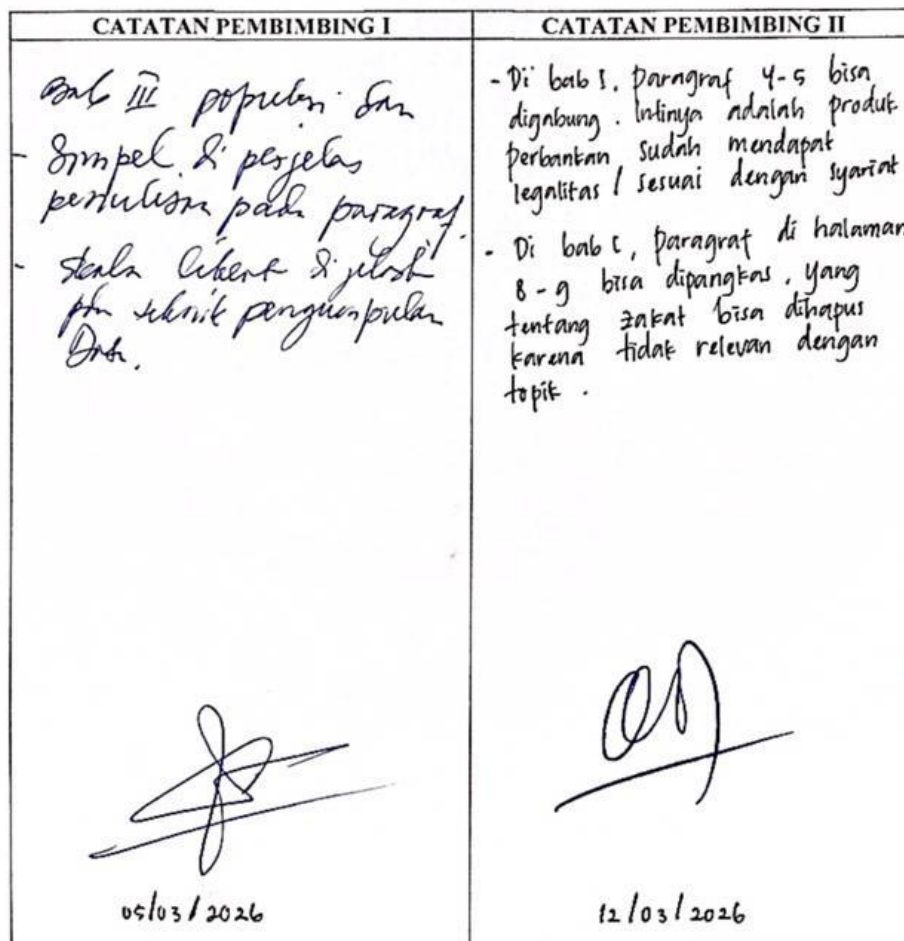 CATATAN PEMBIMBING I
Bab III populasi dan
- Simpel di perjelas
penulisan pada paragraf.
- Skala likert di jelask
pdn teknik pengumpulan
Data.
05/03/2026
CATATAN PEMBIMBING II
- Di bab I, paragraf 4-5 bisa
digabung. Intinya adalah produk
perbankan sudah mendapat
legalitas / sesuai dengan syariat
- Di bab I, paragraf di halaman
8-9 bisa dipangkas, yang
tentang zakat bisa dihapus
karena tidak relevan dengan
topik.
12/03/2026